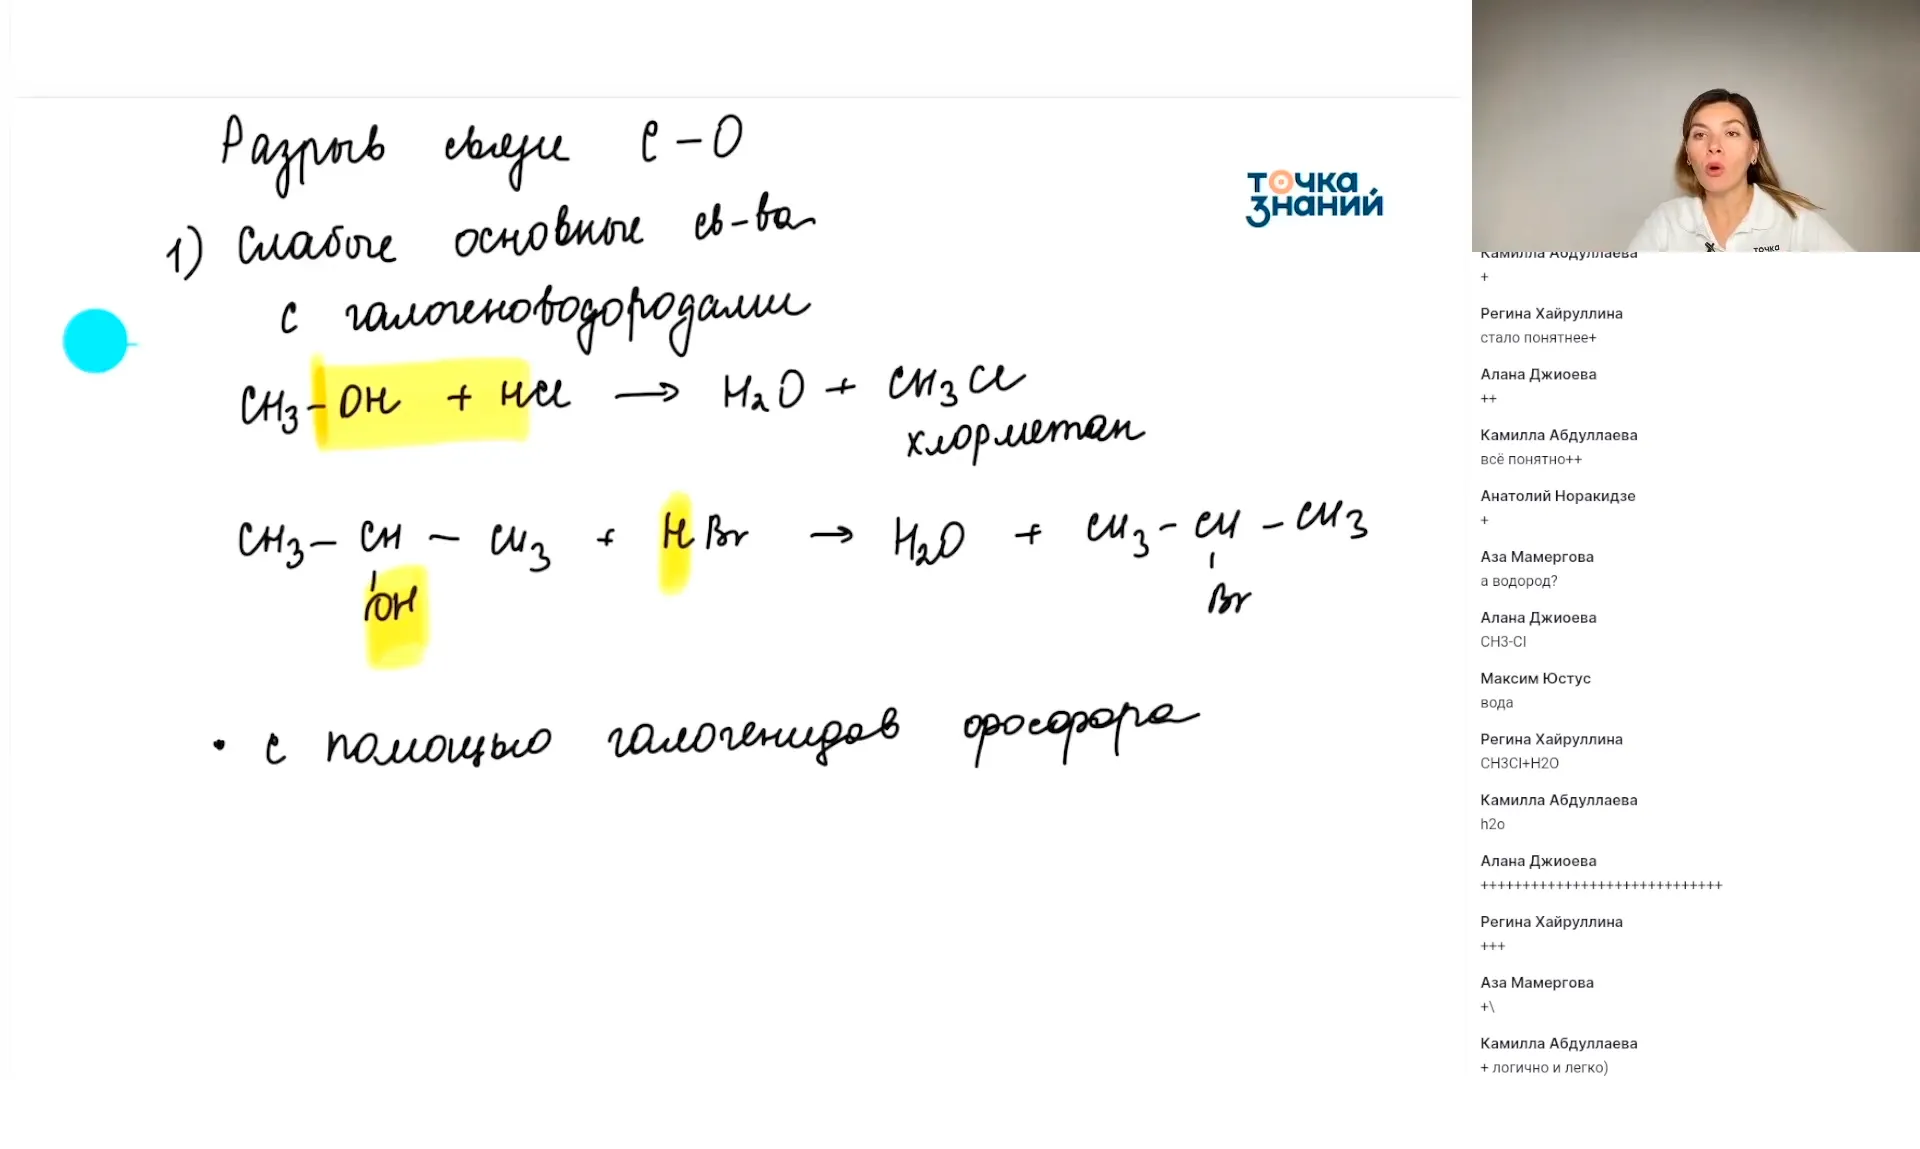 Разрыв связи C – O
1) Слабые основные св-ва
с галогеноводородами
CH3 – OH + HCl → H2O + CH3Cl
хлорметан
CH3 – CH – CH3 + HBr → H2O + CH3 – CH – CH3
OH
Br
• с помощью галогенидов фосфора
точка
знаний
точка
Камилла Абдуллаева
+
Регина Хайруллина
стало понятнее+
Алана Джиоева
++
Камилла Абдуллаева
всё понятно++
Анатолий Норакидзе
+
Аза Мамергова
а водород?
Алана Джиоева
CH3-Cl
Максим Юстус
вода
Регина Хайруллина
CH3Cl+H2O
Камилла Абдуллаева
h2o
Алана Джиоева
+++++++++++++++++++++++++++++
Регина Хайруллина
+++
Аза Мамергова
+\
Камилла Абдуллаева
+ логично и легко)